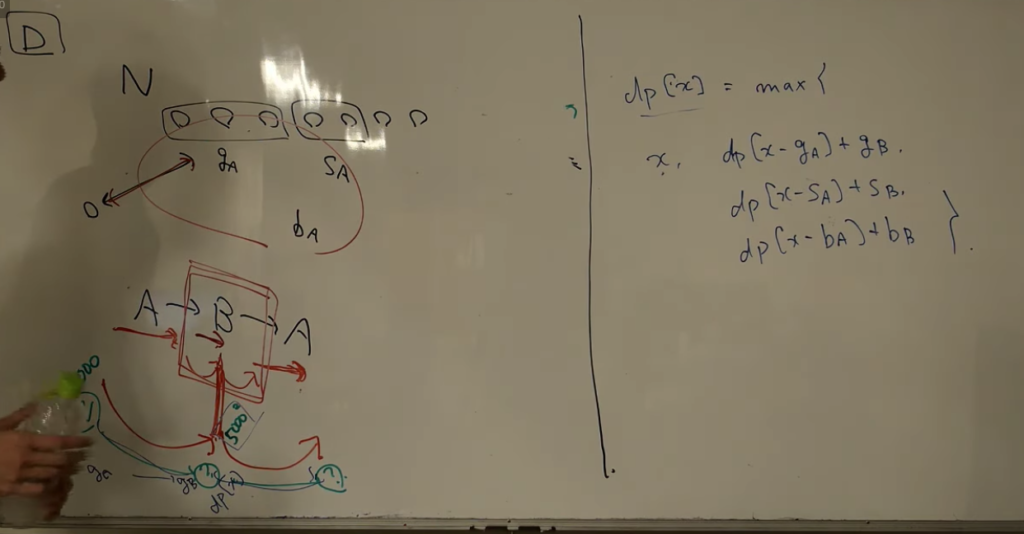 D
N
g_A S_A
0
b_A
A → B → A
5000
g_B
dp[x] = max {
x. dp[x-g_A]+g_B.
dp[x-S_A]+S_B.
dp[x-b_A]+b_B }.